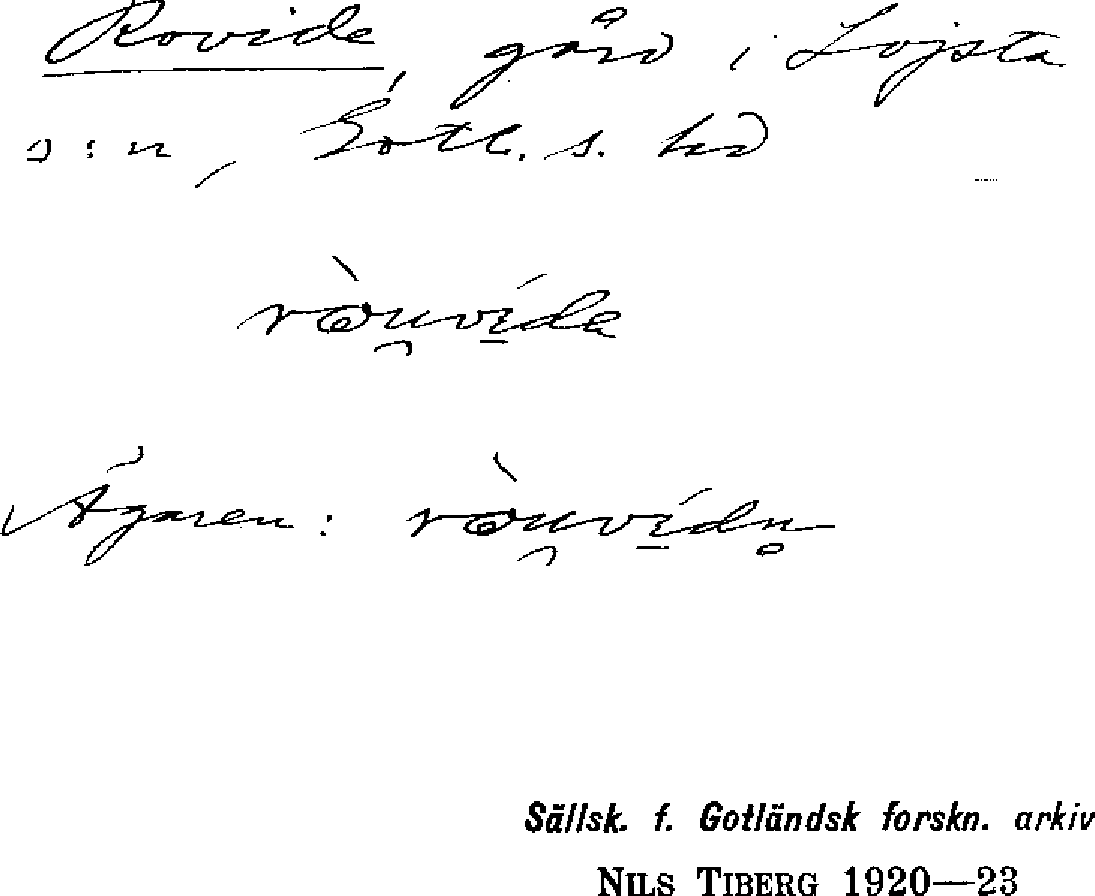 Rovide, gård i Lojsta
s:n, Gotl. s. hd
ròu̯vı́de
Ägaren: ròu̯vı́dn̥
Sällsk. f. Gotländsk forskn. arkiv
NILS TIBERG 1920—23